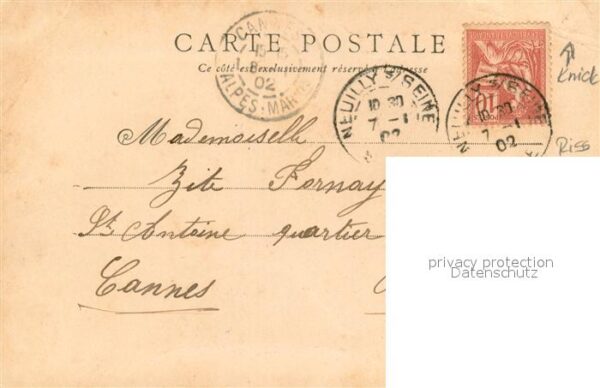 CARTE POSTALE
Ce côté est exclusivement réservé à l'adresse
CANNES
15
8 -1
02
ALPES-MARIT
NEUILLY S/ SEINE
10 30
7 -1
02
NEUILLY S/ SEINE
10 30
7 -1
02
10
Knick
Riss
Mademoiselle
Zite Fornay
St Antoine quartier
Cannes
privacy protection
Datenschutz